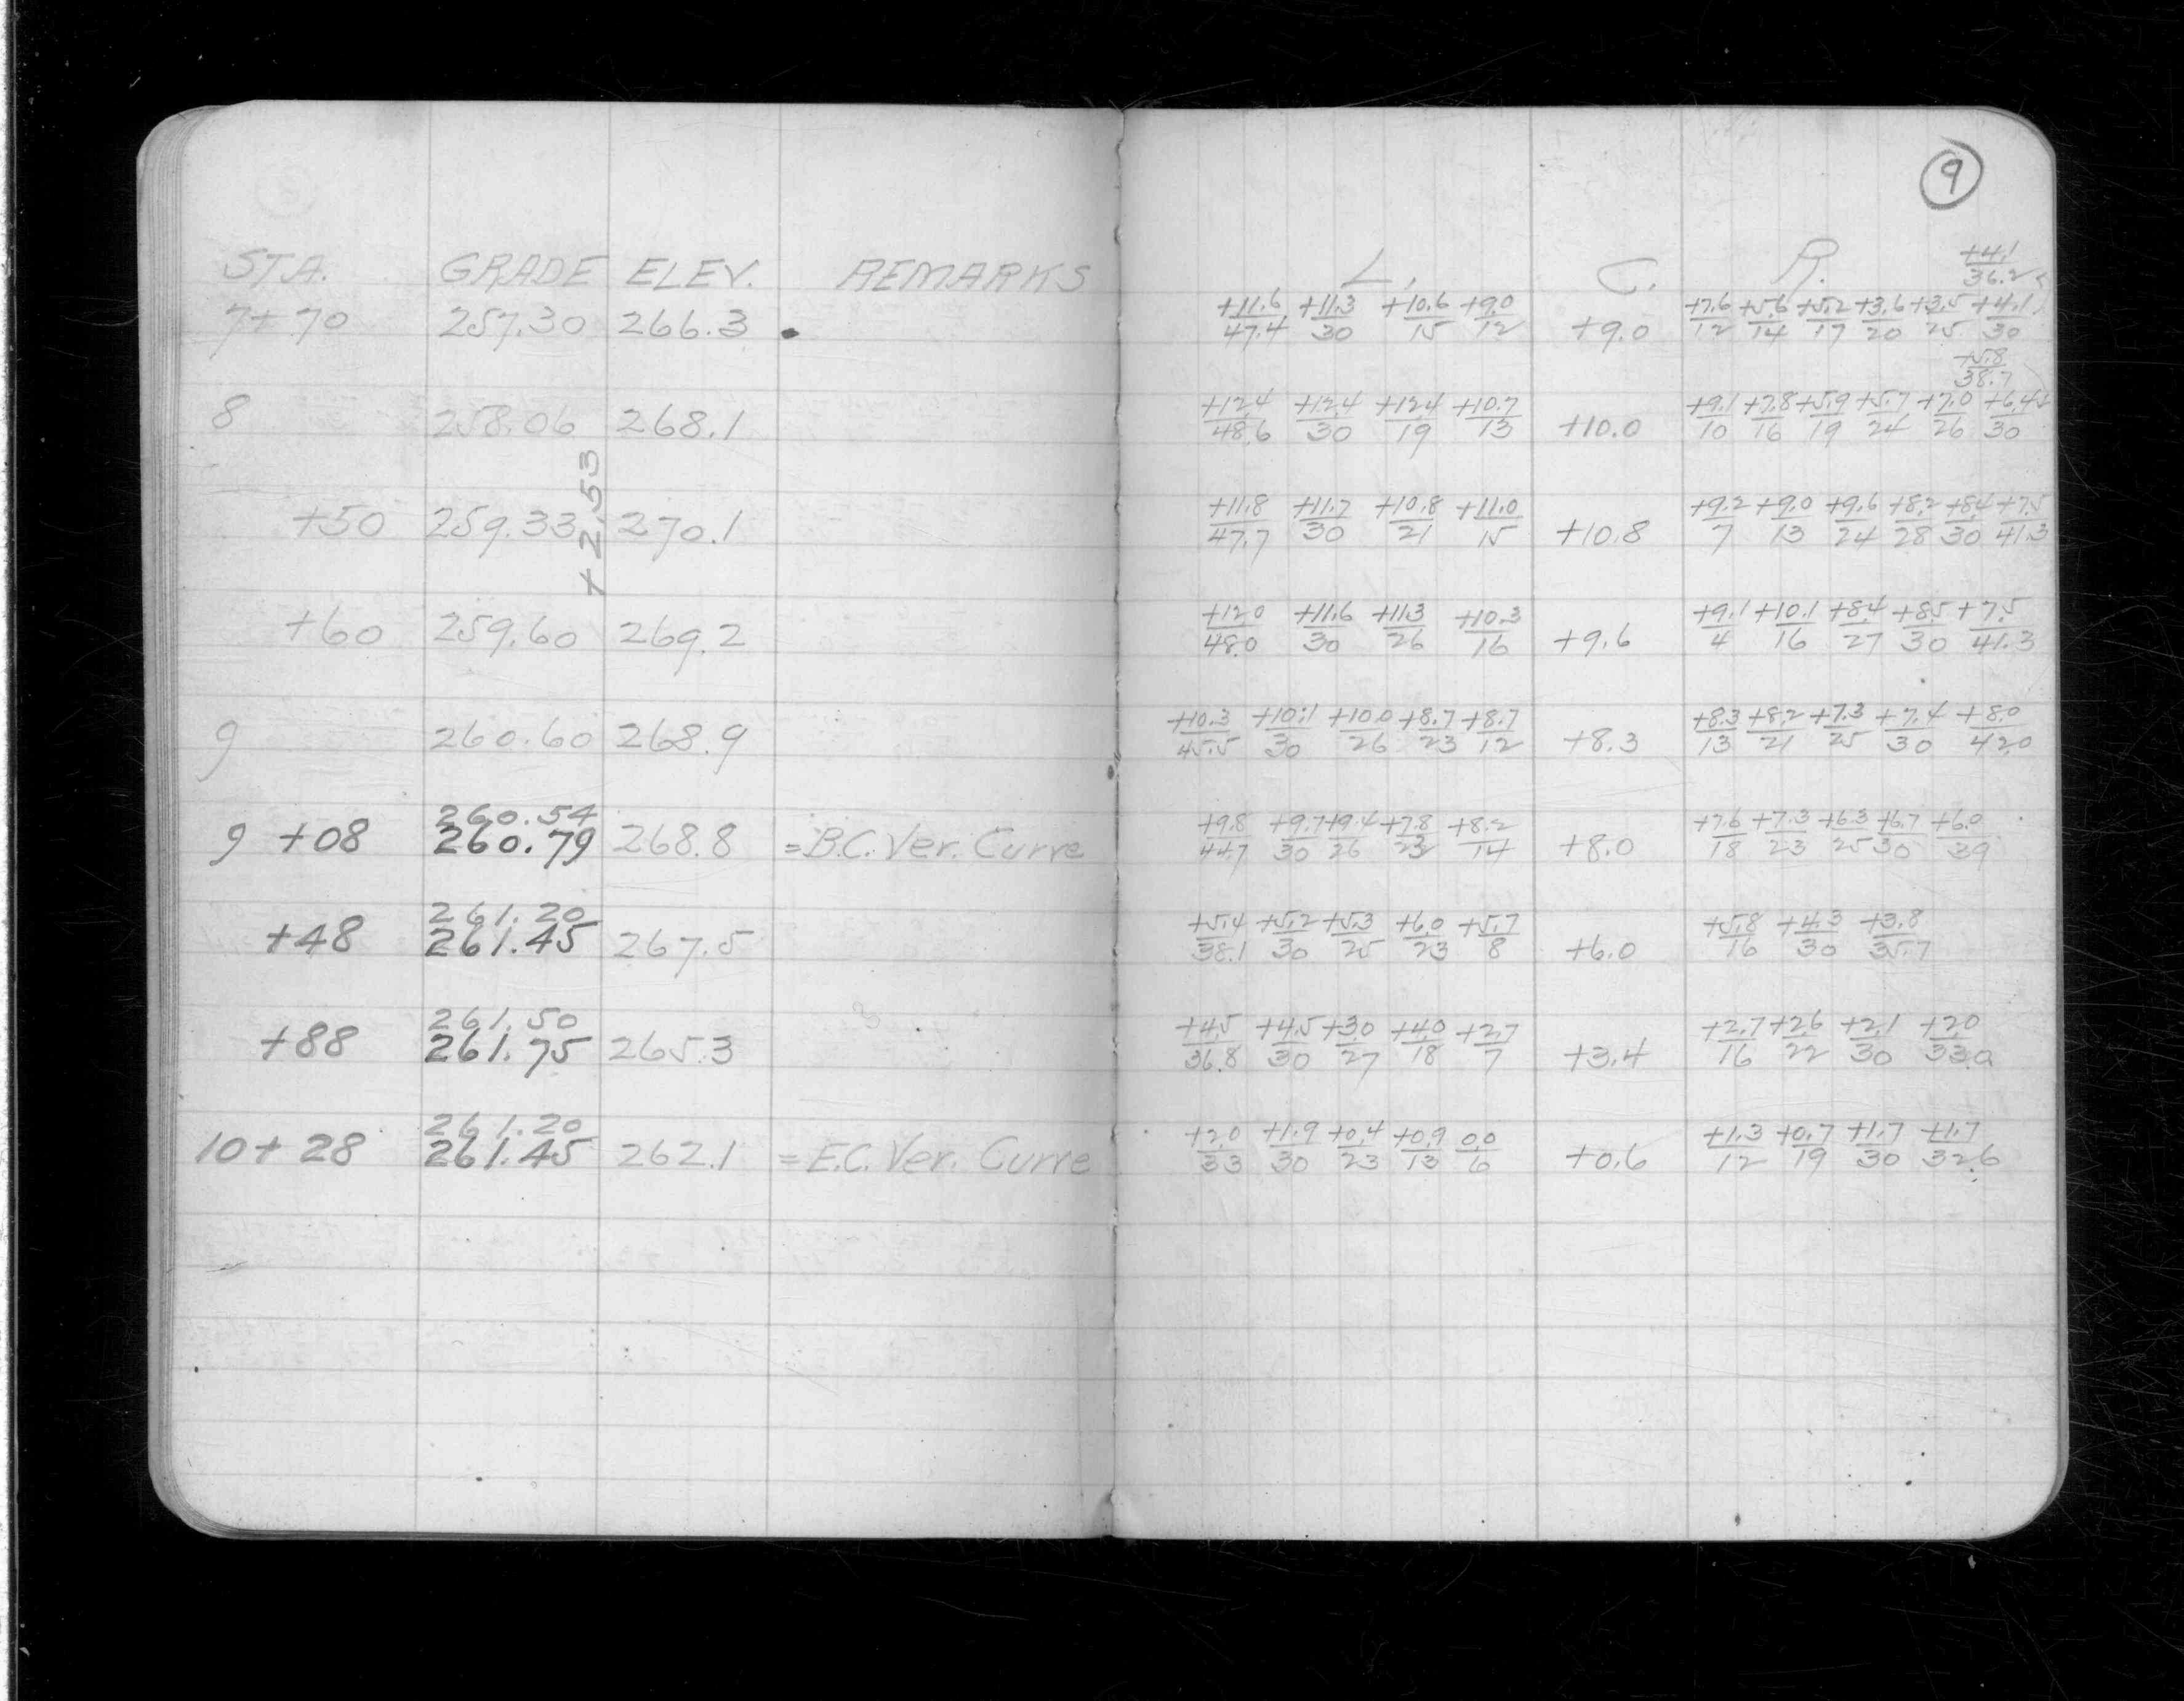 9
STA. GRADE ELEV. REMARKS L. C. R. +4.1/36.2
7+70 257.30 266.3 +11.6/47.4 +11.3/30 +10.6/15 +9.0/12 +9.0 +7.6/12 +5.6/14 +5.2/17 +3.6/20 +3.5/25 +4.1/30
+5.8/38.7
8 258.06 268.1 +12.4/48.6 +12.4/30 +12.4/19 +10.7/13 +10.0 +9.1/10 +7.8/16 +5.9/19 +5.7/24 +7.0/26 +6.4/30
+2.53
+50 259.33 270.1 +11.8/47.7 +11.7/30 +10.8/21 +11.0/15 +10.8 +9.2/7 +9.0/13 +9.6/24 +8.2/28 +8.4/30 +7.5/41.3
+60 259.60 269.2 +12.0/48.0 +11.6/30 +11.3/26 +10.3/16 +9.6 +9.1/4 +10.1/16 +8.4/27 +8.5/30 +7.5/41.3
9 260.60 268.9 +10.3/45.5 +10.1/30 +10.0/26 +8.7/23 +8.7/12 +8.3 +8.3/13 +8.2/21 +7.3/25 +7.4/30 +8.0/42.0
260.54
9 +08 260.79 268.8 =B.C. Ver. Curve +9.8/44.7 +9.7/30 +9.4/26 +7.8/23 +8.2/14 +8.0 +7.6/18 +7.3/23 +6.3/25 +6.7/30 +6.0/39
261.20
+48 261.45 267.5 +5.4/38.1 +5.2/30 +5.3/25 +6.0/23 +5.7/8 +6.0 +5.8/16 +4.3/30 +3.8/35.7
261.50
+88 261.75 265.3 +4.5/36.8 +4.5/30 +3.0/27 +4.0/18 +2.7/7 +3.4 +2.7/16 +2.6/22 +2.1/30 +2.0/33.0
261.20
10+28 261.45 262.1 =E.C. Ver. Curve +2.0/33 +1.9/30 +0.4/23 +0.9/13 0.0/6 +0.6 +1.3/12 +0.7/19 +1.7/30 +1.7/32.6